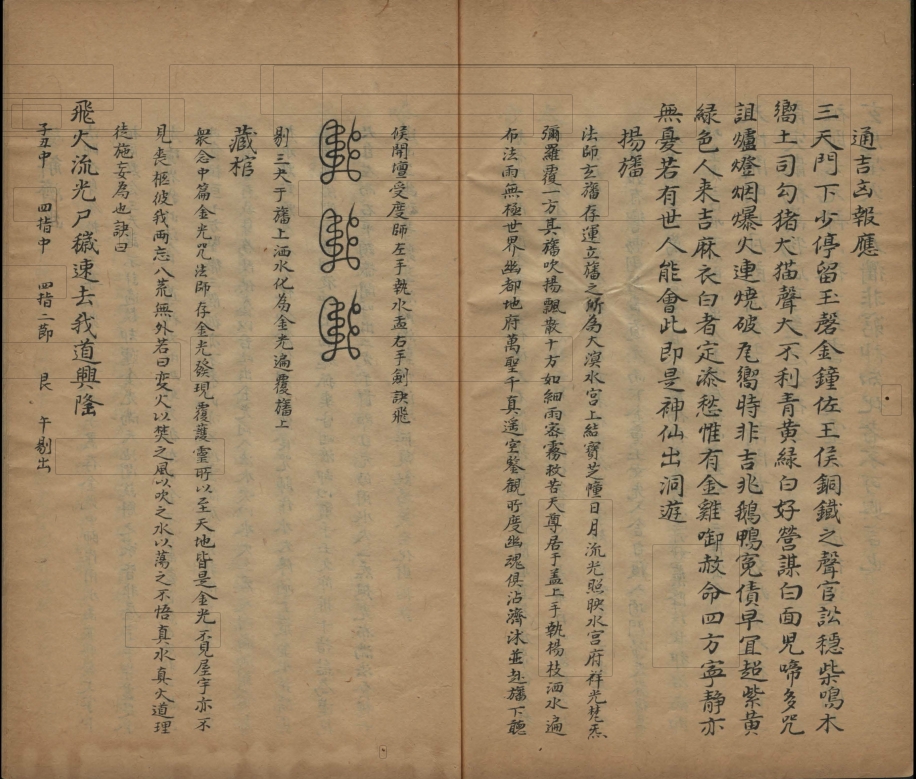 通吉凶報應
三天門下少停留玉磬金鐘佐王侯銅鐵之聲官訟穩柴鳴木
嚮土司勾猪犬猫聲大不利青黃緑白好營謀白面児啼多咒
詛爐燈烟爆火連燒破瓦嚮時非吉兆鵝鴨寃債早冝超紫黄
緑色人来吉麻衣白者定添愁惟有金雞啣赦命四方寧静亦
無憂若有世人能會此即是神仙出洞遊
揚旛
法師玄旛存運立旛之所為大溟水宫上結寶芝幢日月流光照映水宫府祥光梵炁
彌羅覆一方真旛吹揚飄散十方如細雨密霧救苦天尊居于盖上手執楊枝洒水遍
布法雨無極世界幽都地府萬聖千真遥空鑒觀所度幽魂俱沾濟沐並赴旛下聽
候開壇受度師左手執水盂右手劍訣飛
剔三犬于旛上洒水化為金光遍覆旛上
藏棺
衆念中篇金光咒法師存金光發現覆護靈所以至天地皆是金光不見屋宇亦不
見丧柩彼我両忘八荒無外若曰変火以焚之風以吹之水以蕩之不悟真水真火道理
徒施妄為也訣曰
飛火流光尸穢速去我道興隆
子丑中 四指中 四指二節 艮 午剔出